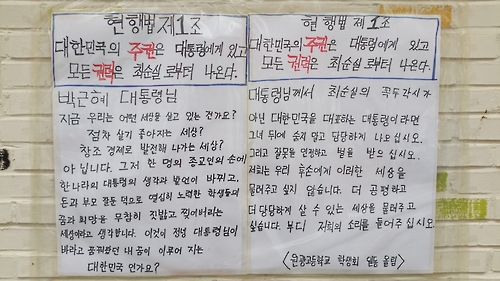 현행법 제1조
대한민국의 주권은 대통령에게 있고
모든 권력은 최순실로부터 나온다.
박근혜 대통령님
지금 우리는 어떤 세상을 살고 있는 건가요?
점차 살기 좋아지는 세상?
창조 경제로 발전해 나가는 세상?
아닙니다. 그저 한 명의 종교인의 손에
한 나라의 대통령의 생각과 발언이 바뀌고,
돈과 부모 잘 둔 덕으로 열심히 노력한 학생들의
꿈과 희망을 무참히 짓밟고 찢어버리는
세상이라고 생각합니다. 이것이 정녕 대통령님이
바라고 꿈꿔왔던 내 꿈이 이루어 지는
대한민국 인가요?
현행법 제1조
대한민국의 주권은 대통령에게 있고
모든 권력은 최순실로부터 나온다.
대통령님께서 최순실의 꼭두각시가
아닌 대한민국을 대표하는 대통령이라면
그녀 뒤에 숨지 말고 당당하게 나오십시오.
그리고 잘못을 인정하고 벌을 받으십시오.
저희는 우리 후손에게 이러한 세상을
물려주고 싶지 않습니다. 더 공평하고
더 당당하게 살 수 있는 세상을 물려주고
싶습니다. 부디 저희의 소리를 들어주십시오
고등학교 학생회 일동 올림